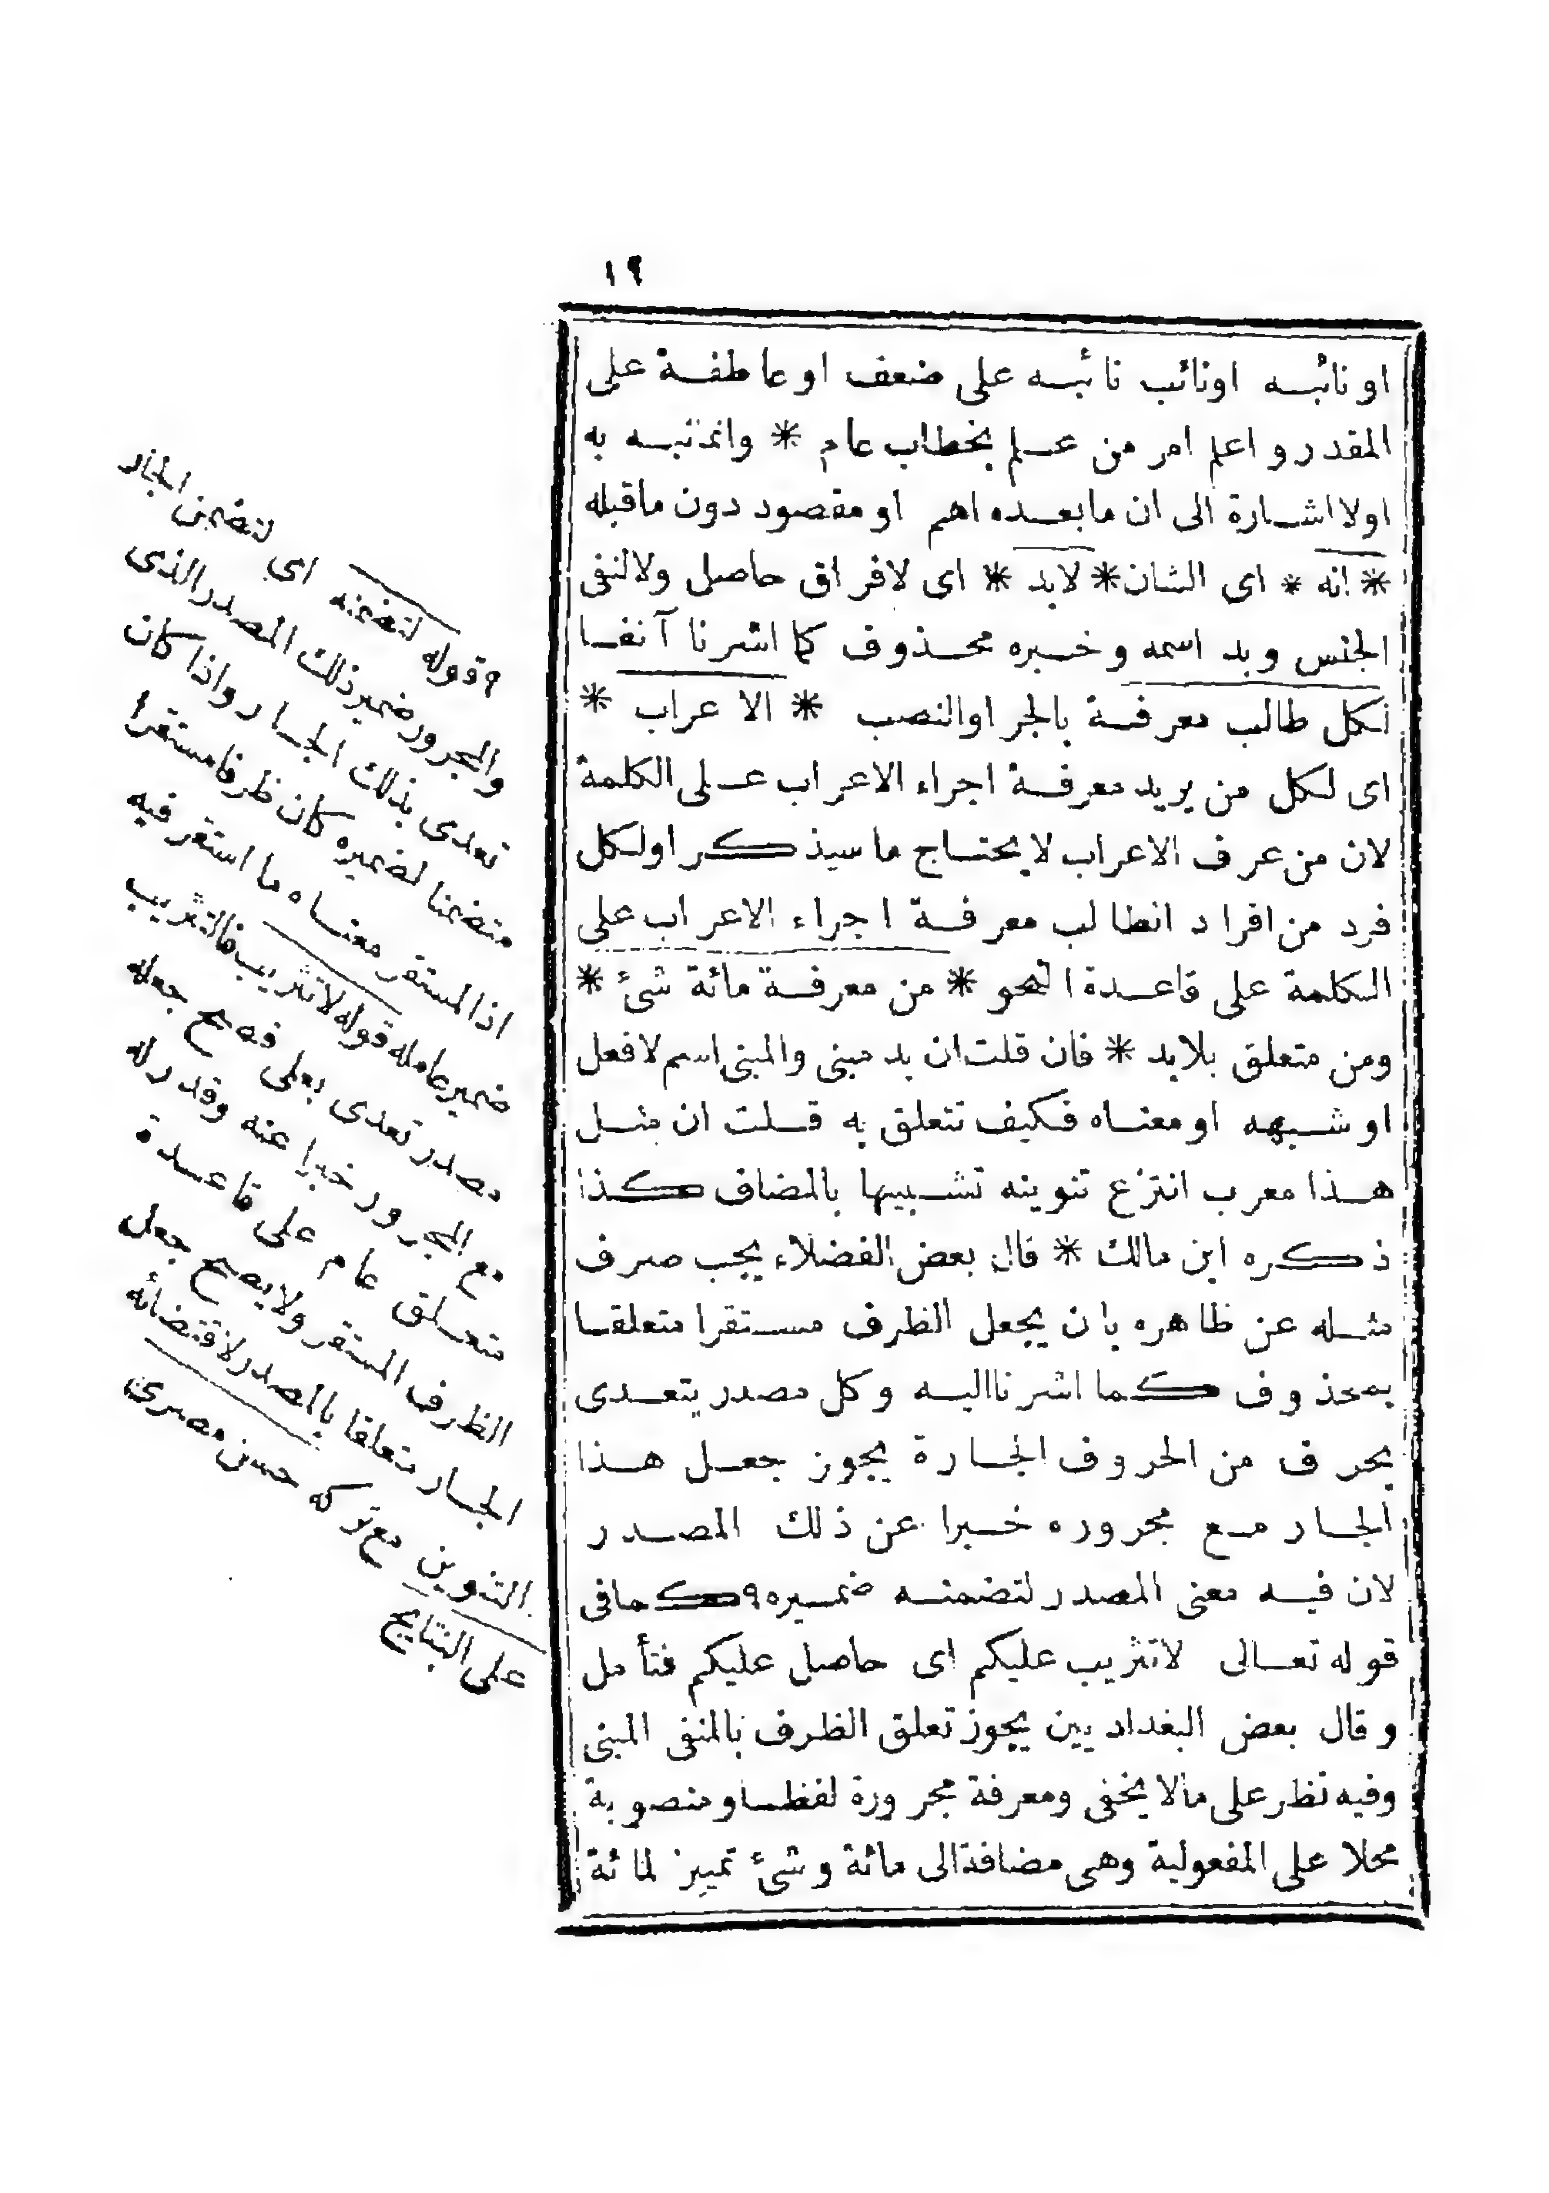 ١٩
او نائبه اونائب نائبه على ضعف او عاطفة على
المقدر و اعلم امر من علم بخطاب عام * وانما نبه به
اولا اشارة الى ان مابعده اهم او مقصود دون ماقبله
* انه * اى الشان * لابد * اى لافراق حاصل ولالنفى
الجنس وبد اسمه وخبره محذوف كما اشرنا آنفا
لكل طالب معرفة بالجر اوالنصب * الاعراب *
اى لكل من يريد معرفة اجراء الاعراب على الكلمة
لان من عرف الاعراب لايحتاج ما سيذكر اولكل
فرد من افراد الطالب معرفة اجراء الاعراب على
الكلمة على قاعدة النحو * من معرفة مائة شئ *
ومن متعلق بلابد * فان قلت ان بد مبنى والمبنى اسم لافعل
او شبهه او معناه فكيف تتعلق به قلت ان مثل
هذا معرب انتزع تنوينه تشبيها بالمضاف كذا
ذكره ابن مالك * قال بعض الفضلاء يجب صرف
مثله عن ظاهره بان يجعل الظرف مستقرا متعلقا
بمحذوف كما اشرنااليه وكل مصدر يتعدى
بحرف من الحروف الجارة يجوز جعل هذا
الجار مع مجروره خبرا عن ذلك المصدر
لان فيه معنى المصدر لتضمنه ضميره ٩ كمافى
قوله تعالى لاتثريب عليكم اى حاصل عليكم فتأمل
وقال بعض البغداديين يجوز تعلق الظرف بالمنفى المبنى
وفيه نظر على مالايخفى ومعرفة مجرورة لفظا ومنصوبة
محلا على المفعولية وهى مضافة الى مائة وشئ تمييز لمائة
٩ قوله لتضمنه اى لتضمن الجار
والمجرور ضمير ذلك المصدر الذى
تعدى بذلك الجار واذا كان
متضمنا لضميره كان ظرفا مستقرا
اذ المستقر معناه ما استقر فيه
ضمير عامله قوله لاتثريب فالتثريب
مصدر تعدى بعلى فصح جعله
مع المجرور خبرا عنه وقدر له
متعلق عام على قاعدة
الظرف المستقر ولايصح جعل
الجار متعلقا بالمصدر لاقتضائه
التنوين مع تركه حسن مصرى
على النتايج